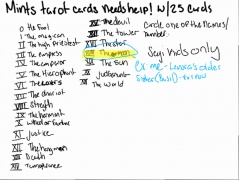 Mints tarot cards needs help! w/23 cards
0 the Fool
I The magician
II The high priestess
III The empress
IV The emperor
V The Hierophant
VI The lovers
VII The chariot
VIII Strength
IX The hermit
X wheel of fortune
XI justice
XII The hangman
XIII Death
XIV Temperance
XV The devil
XVI The tower
XVII The star
XVIII The moon
XIX The sun
XX judgement
XXI The world
Circle one of the Names/
number.
Seginds only
ex: me -
older
sister